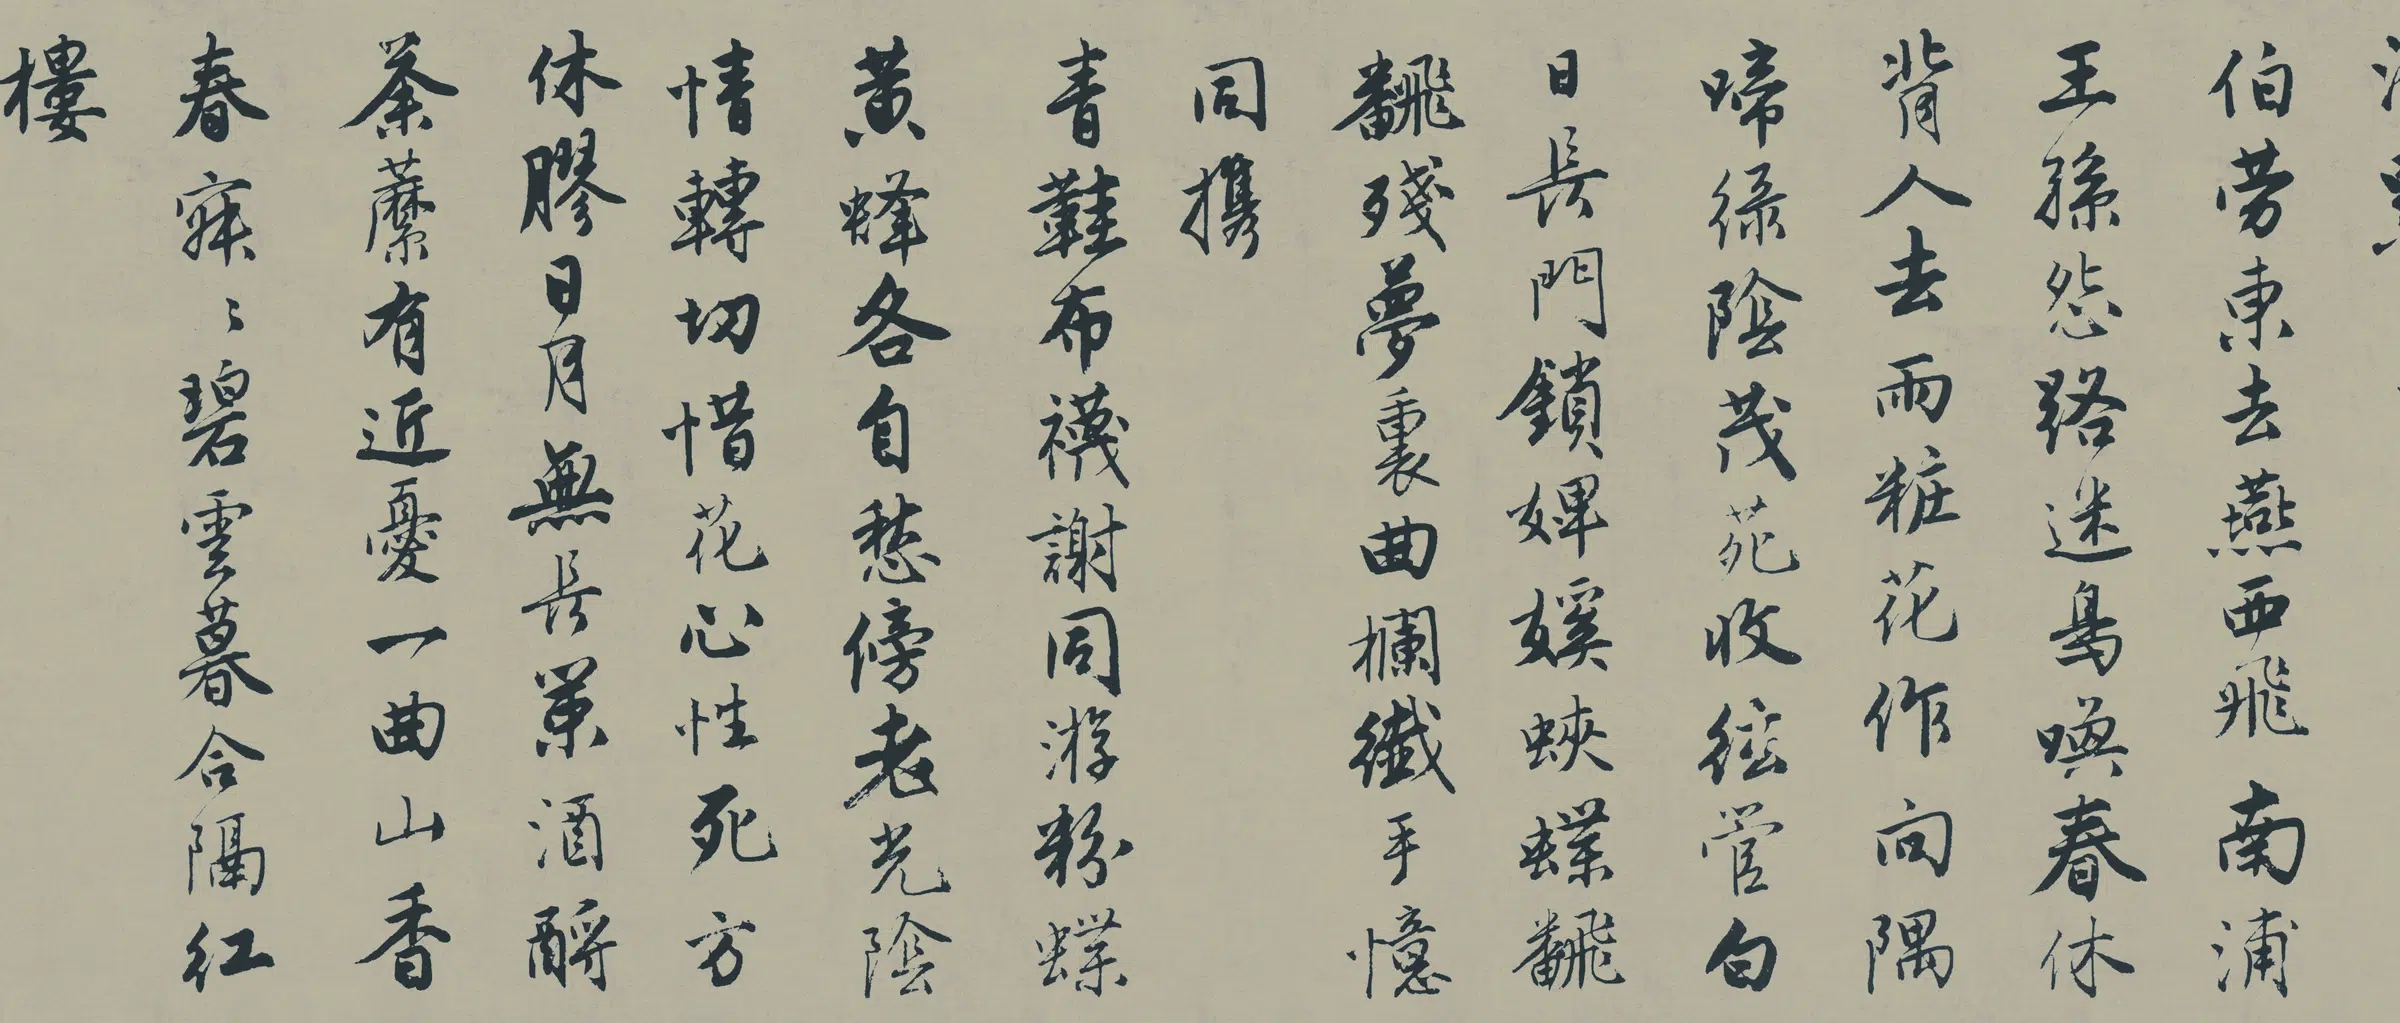 伯勞東去燕西飛南浦
王孫怨路迷鳥喚春休
背人去雨粧花作向隅
啼綠陰茂苑收絃管白
日長門鎖婢媛蛺蝶飜
飜殘夢裏曲欄纖手憶
同携
青鞋布襪謝同游粉蝶
黃蜂各自愁傍老光陰
情轉切惜花心性死方
休膠日月無長策酒酹
荼蘼有近憂一曲山香
春寂〻碧雲暮合隔紅
樓